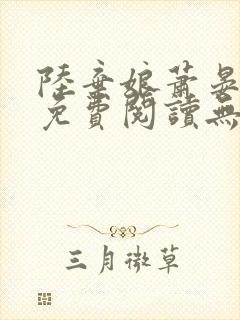 陸棄娘蕭晏
免費閱讀無
三月微草